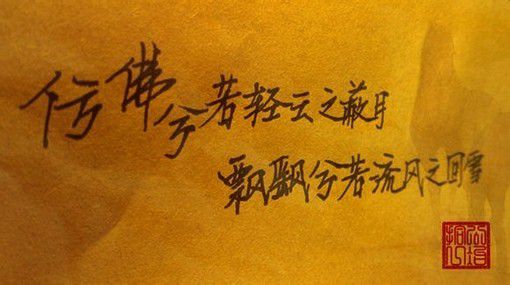 仿佛兮若轻云之蔽月
飘飘兮若流风之回雪